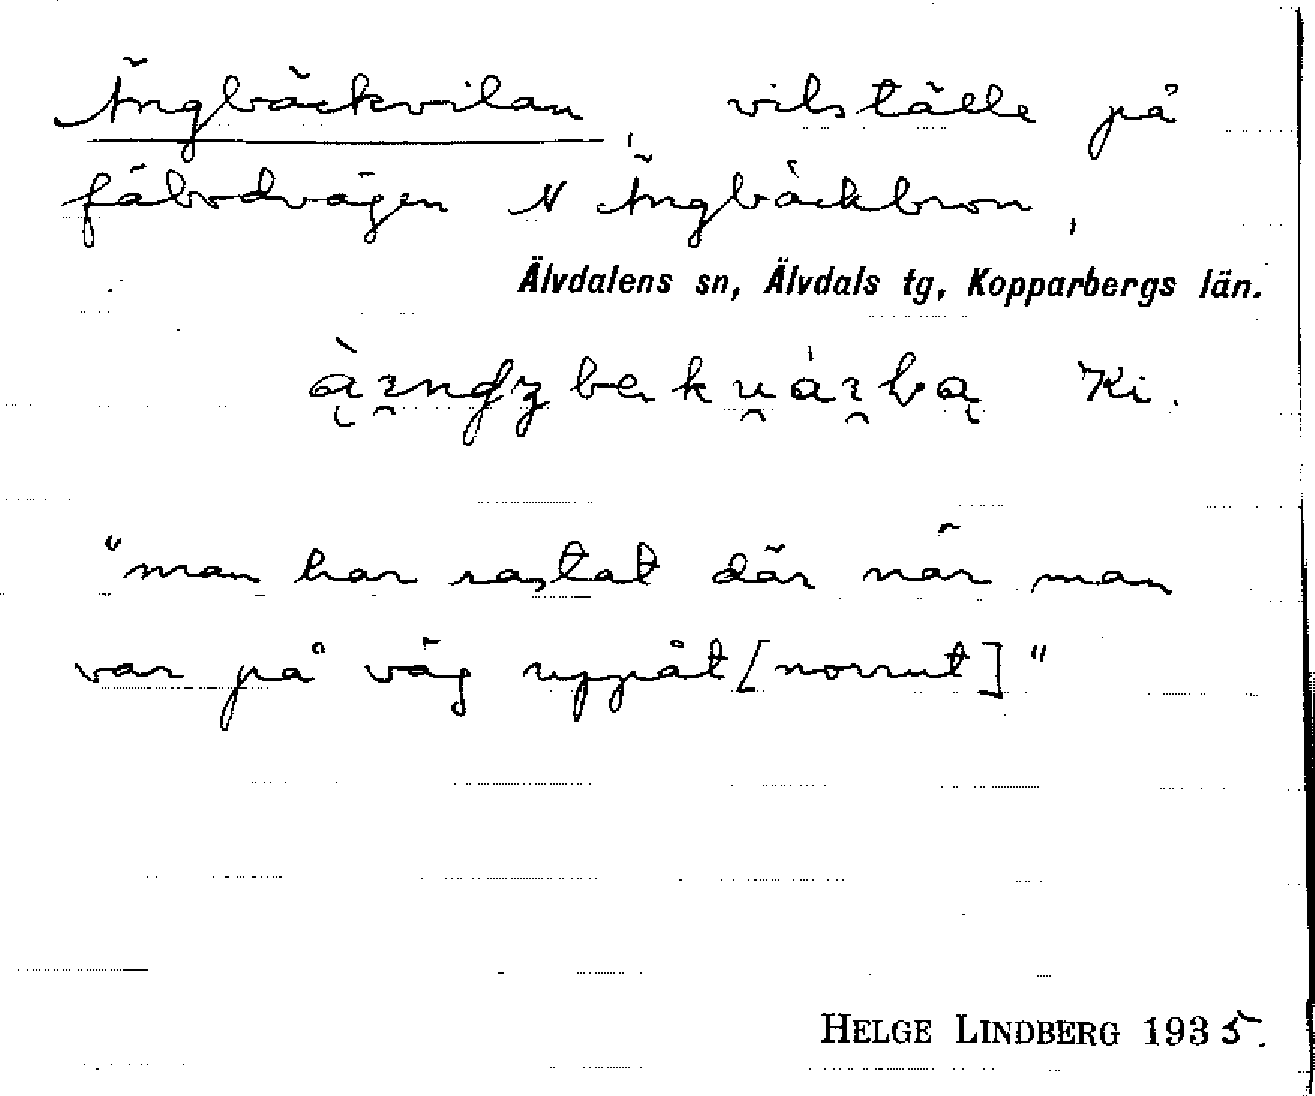 Ängbäckvilan, vilställe på
fäbodvägen N Ängbäckbron,
Älvdalens sn, Älvdals tg, Kopparbergs län.
Ki.
"man har rastat där när man
var på väg uppåt [norrut]"
HELGE LINDBERG 1935.